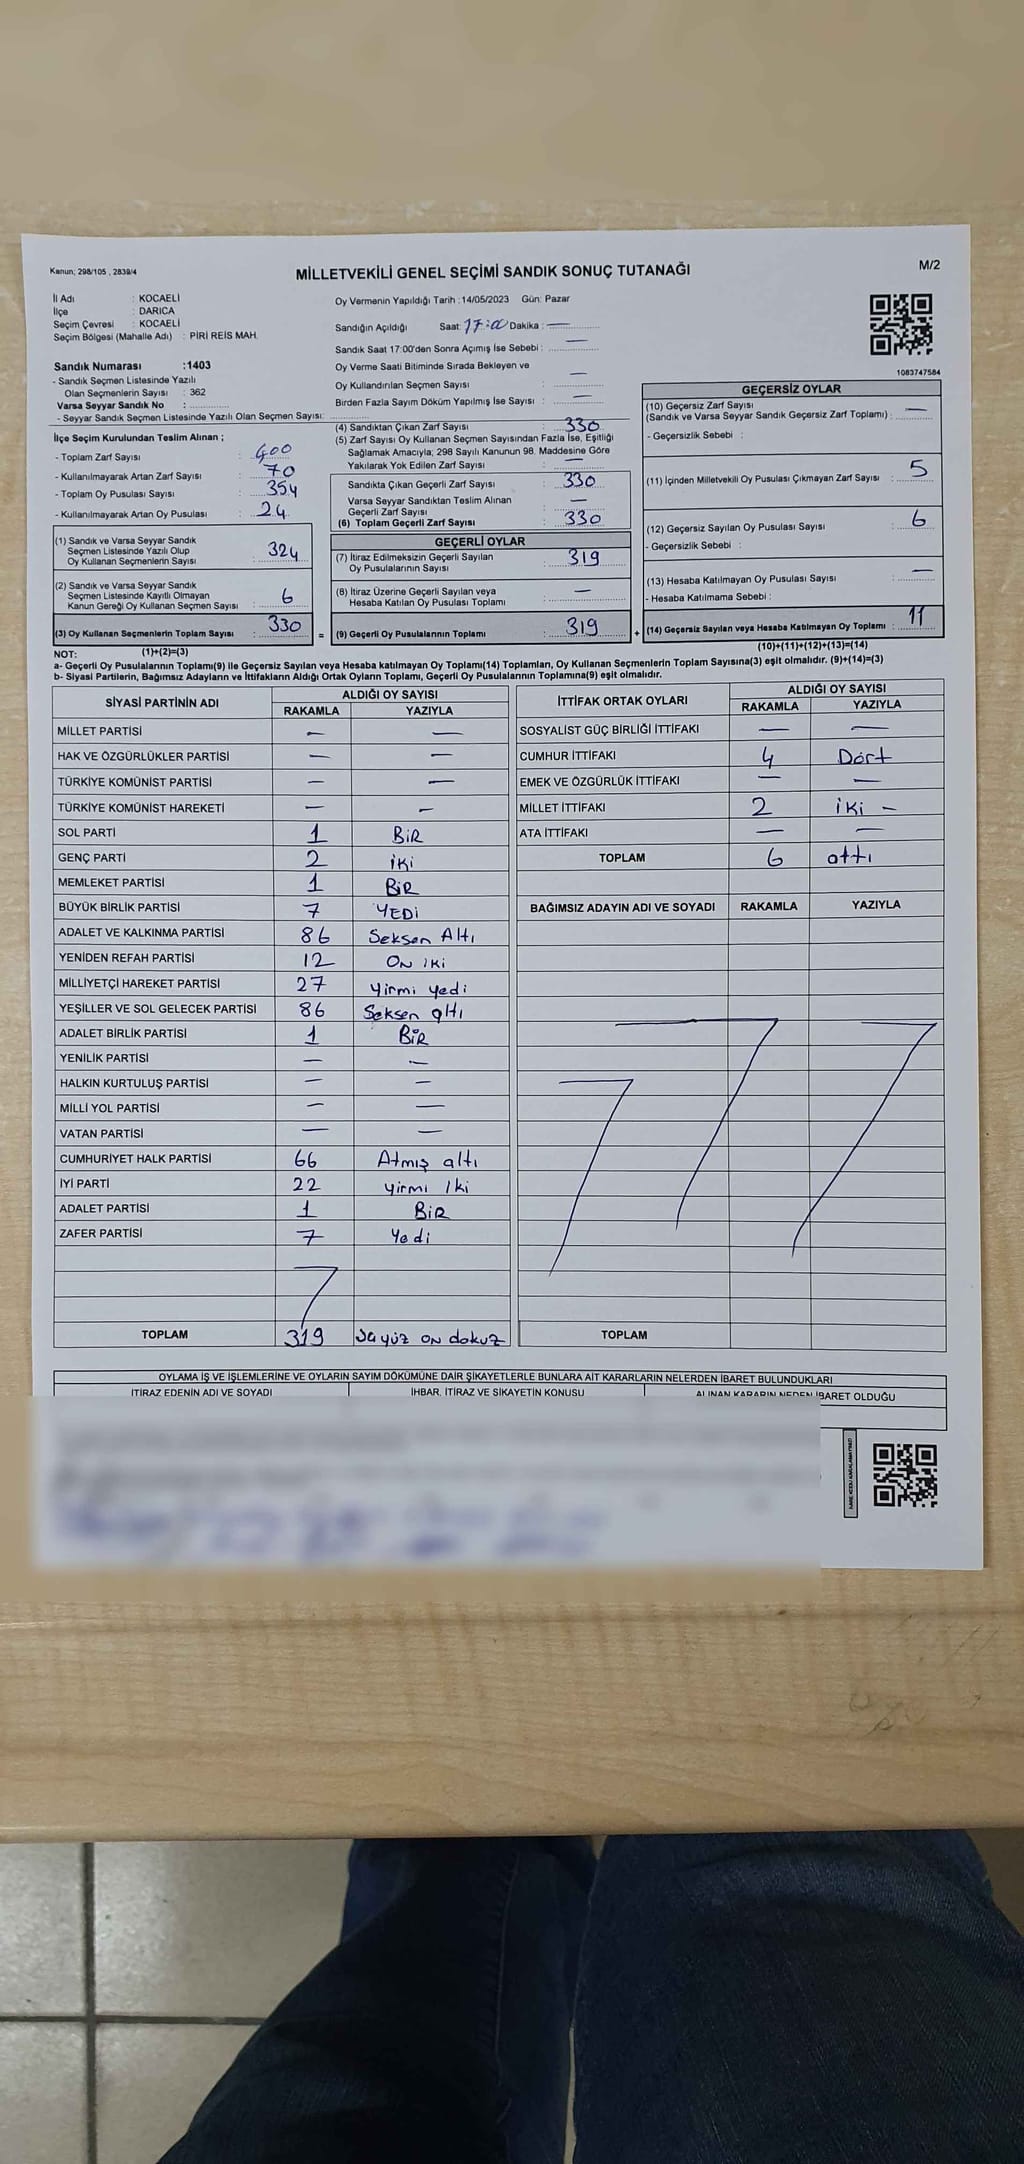 Kanun; 298/105 , 2839/4
MİLLETVEKİLİ GENEL SEÇİMİ SANDIK SONUÇ TUTANAĞI
M/2
İl Adı : KOCAELİ
İlçe : DARICA
Seçim Çevresi : KOCAELİ
Seçim Bölgesi (Mahalle Adı) : PİRİ REİS MAH.
Sandık Numarası :1403
- Sandık Seçmen Listesinde Yazılı
Olan Seçmenlerin Sayısı : 362
Varsa Seyyar Sandık No :
- Seyyar Sandık Seçmen Listesinde Yazılı Olan Seçmen Sayısı:
İlçe Seçim Kurulundan Teslim Alınan ;
- Toplam Zarf Sayısı : 400
- Kullanılmayarak Artan Zarf Sayısı : 70
- Toplam Oy Pusulası Sayısı : 354
- Kullanılmayarak Artan Oy Pusulası : 24
(1) Sandık ve Varsa Seyyar Sandık
Seçmen Listesinde Yazılı Olup
Oy Kullanan Seçmenlerin Sayısı : 324
(2) Sandık ve Varsa Seyyar Sandık
Seçmen Listesinde Kayıtlı Olmayan
Kanun Gereği Oy Kullanan Seçmen Sayısı : 6
(3) Oy Kullanan Seçmenlerin Toplam Sayısı : 330
Oy Vermenin Yapıldığı Tarih :14/05/2023 Gün: Pazar
Sandığın Açıldığı Saat: 17:00 Dakika : —
Sandık Saat 17:00'den Sonra Açımış İse Sebebi : —
Oy Verme Saati Bitiminde Sırada Bekleyen ve
Oy Kullandırılan Seçmen Sayısı : —
Birden Fazla Sayım Döküm Yapılmış İse Sayısı : —
(4) Sandıktan Çıkan Zarf Sayısı : 330
(5) Zarf Sayısı Oy Kullanan Seçmen Sayısından Fazla İse, Eşitliği
Sağlamak Amacıyla; 298 Sayılı Kanunun 98. Maddesine Göre
Yakılarak Yok Edilen Zarf Sayısı : —
Sandıkta Çıkan Geçerli Zarf Sayısı : 330
Varsa Seyyar Sandıktan Teslim Alınan
Geçerli Zarf Sayısı : —
(6) Toplam Geçerli Zarf Sayısı : 330
GEÇERLİ OYLAR
(7) İtiraz Edilmeksizin Geçerli Sayılan
Oy Pusulalarının Sayısı : 319
(8) İtiraz Üzerine Geçerli Sayılan veya
Hesaba Katılan Oy Pusulası Toplamı : —
= (9) Geçerli Oy Pusulalarının Toplamı : 319
1083747584
GEÇERSİZ OYLAR
(10) Geçersiz Zarf Sayısı
(Sandık ve Varsa Seyyar Sandık Geçersiz Zarf Toplamı) : —
- Geçersizlik Sebebi :
(11) İçinden Milletvekili Oy Pusulası Çıkmayan Zarf Sayısı : 5
(12) Geçersiz Sayılan Oy Pusulası Sayısı : 6
- Geçersizlik Sebebi :
(13) Hesaba Katılmayan Oy Pusulası Sayısı : —
- Hesaba Katılmama Sebebi :
+ (14) Geçersiz Sayılan veya Hesaba Katılmayan Oy Toplamı : 11
NOT: (1)+(2)=(3) (10)+(11)+(12)+(13)=(14)
a- Geçerli Oy Pusulalarının Toplamı(9) ile Geçersiz Sayılan veya Hesaba katılmayan Oy Toplamı(14) Toplamları, Oy Kullanan Seçmenlerin Toplam Sayısına(3) eşit olmalıdır. (9)+(14)=(3)
b- Siyasi Partilerin, Bağımsız Adayların ve İttifakların Aldığı Ortak Oyların Toplamı, Geçerli Oy Pusulalarının Toplamına(9) eşit olmalıdır.
SİYASİ PARTİNİN ADI ALDIĞI OY SAYISI
RAKAMLA YAZIYLA
MİLLET PARTİSİ — —
HAK VE ÖZGÜRLÜKLER PARTİSİ — —
TÜRKİYE KOMÜNİST PARTİSİ — —
TÜRKİYE KOMÜNİST HAREKETİ — —
SOL PARTİ 1 BİR
GENÇ PARTİ 2 iki
MEMLEKET PARTİSİ 1 BİR
BÜYÜK BİRLİK PARTİSİ 7 YEDİ
ADALET VE KALKINMA PARTİSİ 86 Seksen Altı
YENİDEN REFAH PARTİSİ 12 ON iKi
MİLLİYETÇİ HAREKET PARTİSİ 27 yirmi yedi
YEŞİLLER VE SOL GELECEK PARTİSİ 86 Seksen altı
ADALET BİRLİK PARTİSİ 1 BİR
YENİLİK PARTİSİ — —
HALKIN KURTULUŞ PARTİSİ — —
MİLLİ YOL PARTİSİ — —
VATAN PARTİSİ — —
CUMHURİYET HALK PARTİSİ 66 Atmış altı
İYİ PARTİ 22 yirmi iki
ADALET PARTİSİ 1 BİR
ZAFER PARTİSİ 7 Yedi
TOPLAM 319 üçyüz on dokuz
İTTİFAK ORTAK OYLARI ALDIĞI OY SAYISI
RAKAMLA YAZIYLA
SOSYALİST GÜÇ BİRLİĞİ İTTİFAKI — —
CUMHUR İTTİFAKI 4 Dört
EMEK VE ÖZGÜRLÜK İTTİFAKI — —
MİLLET İTTİFAKI 2 iki —
ATA İTTİFAKI — —
TOPLAM 6 altı
BAĞIMSIZ ADAYIN ADI VE SOYADI RAKAMLA YAZIYLA
TOPLAM
OYLAMA İŞ VE İŞLEMLERİNE VE OYLARIN SAYIM DÖKÜMÜNE DAİR ŞİKAYETLERLE BUNLARA AİT KARARLARIN NELERDEN İBARET BULUNDUKLARI
İTİRAZ EDENİN ADI VE SOYADI İHBAR, İTİRAZ VE ŞİKAYETİN KONUSU ALINAN KARARIN NEDEN İBARET OLDUĞU